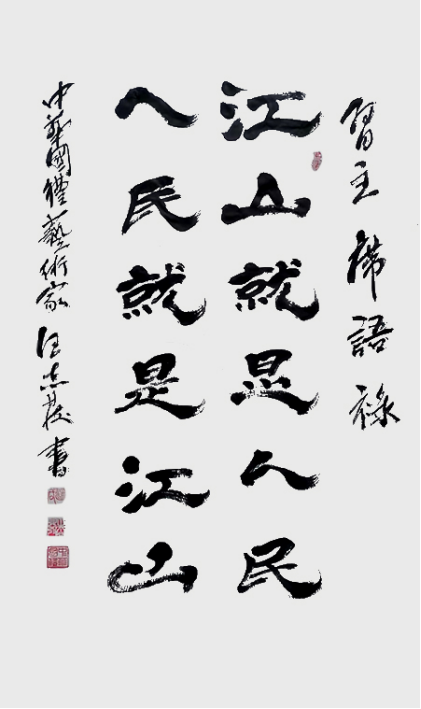 習主席語祿
江山就是人民
人民就是江山
中華國禮藝術家 汪志 書